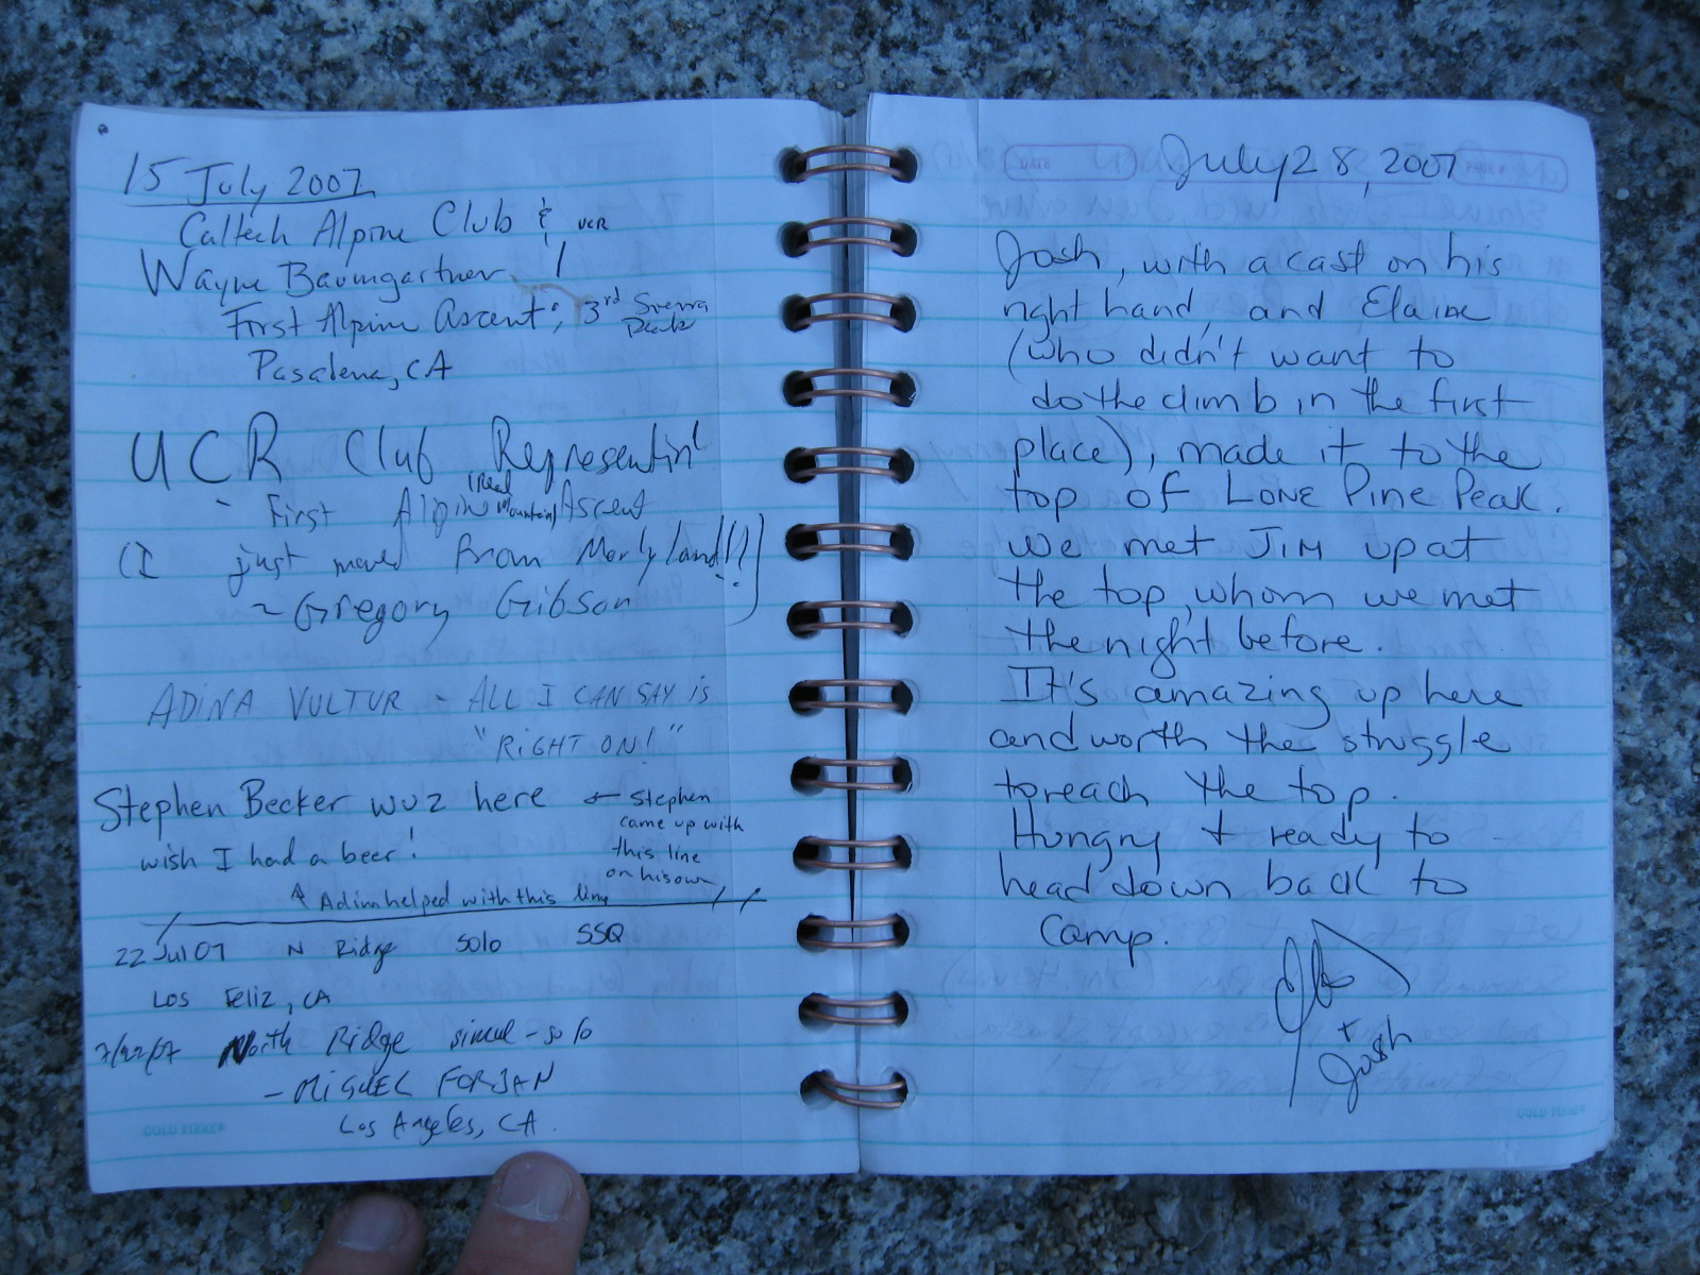 15 July 2007
Caltech Alpine Club & UCR
Wayne Baumgartner !
First Alpine Ascent; 3rd Sierra Peak
Pasadena, CA
UCR Club Representin'
- First Alpine (Real Mountain) Ascent
(I just moved from Maryland!!)
~ Gregory Gibson
ADINA VULTUR - ALL I CAN SAY IS
"RIGHT ON!"
Stephen Becker wuz here ← Stephen
came up with
this line
on his own
wish I had a beer!
↑ Adina helped with this line
22 Jul 07 N Ridge solo SSQ
Los Feliz, CA
7/22/07 North Ridge simul-solo
- MIGUEL FORJAN
Los Angeles, CA.
GOLD FIBRE
July 28, 2007
Josh, with a cast on his
right hand, and Elaine
(who didn't want to
do the climb in the first
place), made it to the
top of Lone Pine Peak.
We met JIM up at
the top, whom we met
the night before.
It's amazing up here
and worth the struggle
to reach the top.
Hungry + ready to
head down back to
camp.
+
Josh